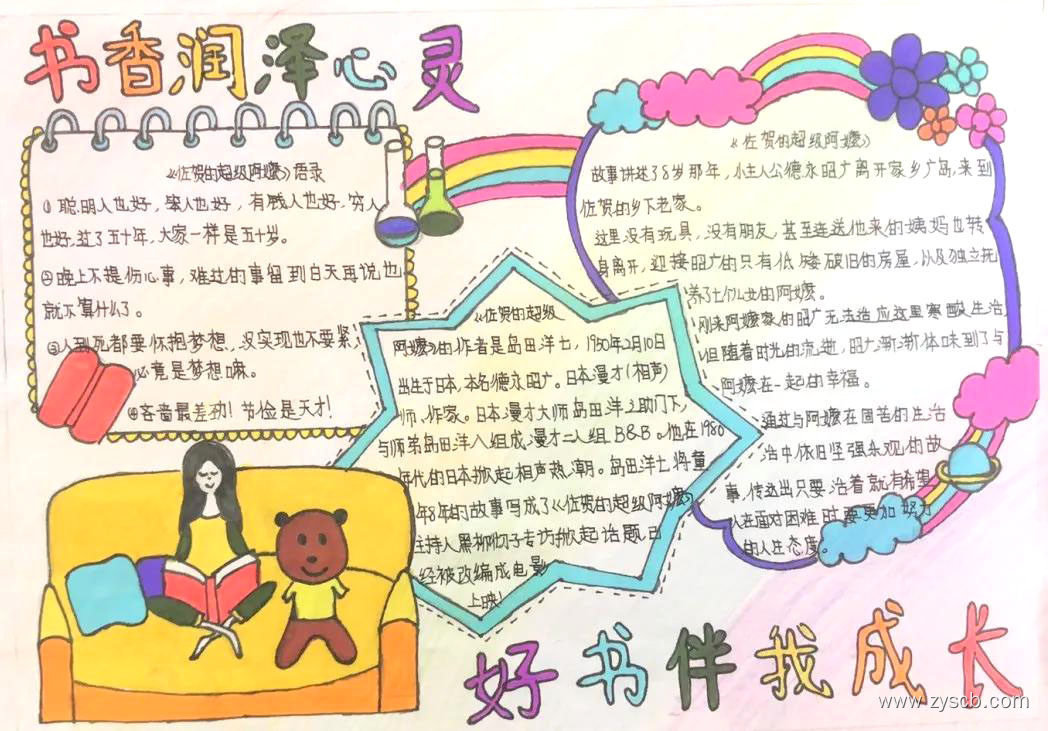 书香润泽心灵
《佐贺的超级阿嬷》语录
① 聪明人也好，笨人也好，有钱人也好，穷人
也好，过了五十年，大家一样是五十岁。
②晚上不提伤心事，难过的事留到白天再说也
就不算什么了。
③人到死都要怀抱梦想，没实现也不要紧，
竟是梦想嘛。
④吝啬最差劲！节俭是天才！
《佐贺的超级
阿嬷》的作者是岛田洋七，1950年2月10日
出生于日本，本名德永昭广。日本漫才（相声）
师、作家。日本漫才大师岛田洋之助门下，
与师弟岛田洋八组成漫才二人组B&B。他在1980
年代的日本掀起相声热潮。岛田洋七将童
年8年的故事写成了《佐贺的超级阿嬷》
主持人黑柳彻子专访掀起话题，已
经被改编成电影
上映！
《佐贺的超级阿嬷》
故事讲述了8岁那年，小主人公德永昭广离开家乡广岛，来到
佐贺的乡下老家。
这里没有玩具，没有朋友，甚至连送他来的姨妈也转
身离开，迎接昭广的只有低矮破旧的房屋，以及独立抚
养了七个儿女的阿嬷。
刚来阿嬷家的昭广无法适应这里寒酸生活，
但随着时光的流逝，昭广渐渐体味到了与
阿嬷在一起的幸福。
通过与阿嬷在困苦的生活
治中依旧坚强乐观的故
事，传达出只要活着就有希望
人在面对困难时要更加努力
的人生态度。
好书伴我成长
www.zyscb.com